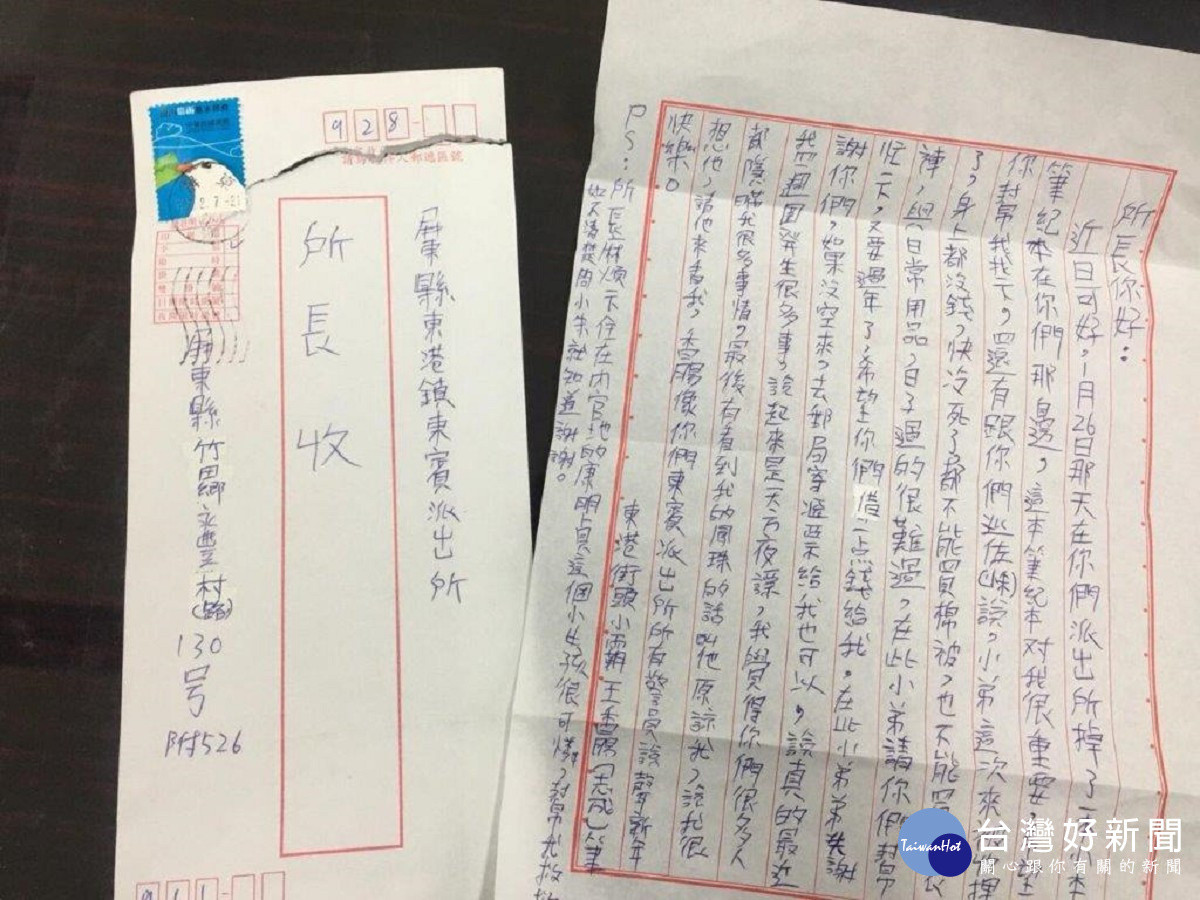 928
請寫收件人郵遞區號
屏東縣東港鎮東賓派出所
所長 收
屏東縣竹田鄉永豐村(路)
130
号
附526
911
所長你好:
近日可好,1月26日那天在你們派出所掉了一本
筆紀本在你們那邊,這本筆紀本对我很重要,
你幫我找一下,四還有跟你們巡佐(株)說,小弟這次來
了,身上都沒錢,快冷死了都不能買棉被,也不能買
褲,與日常用品,日子過的很難過,在此小弟請你們幫
忙一下,又要過年了,希望你們借一点錢給我,在此小弟弟先謝
謝你們,如果沒空來,去郵局寄過票給我也可以,說真的最近
我四週圍発生很多事,說起來是天方夜譚,我覺得你們很多人
都隱瞞我很多事情,最後有看到我的周珠的話叫他原諒我,說我很
想他,請他來看我,香腸像你們東賓派出所所有警員說聲新年
快樂。
東港街頭小霸王香腸(志成)筆
PS:所長麻煩一下住在內官地的康明貞這個小女孩很可憐,幫我救救
如不清楚問小朱就知道謝謝。
台灣好新聞
TaiwanHot
關心跟你有關的新聞